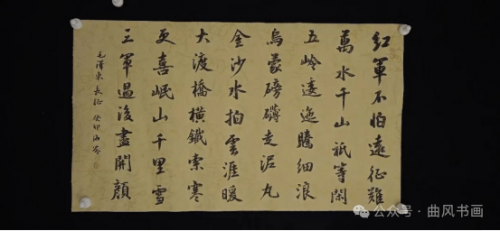 紅軍不怕遠征難
萬水千山祗等閑
五岭逶迤騰細浪
烏蒙磅礴走泥丸
金沙水拍雲涯暖
大渡橋橫鐵索寒
更喜岷山千里雪
三軍過後盡開顏
毛澤東長征 癸卯海岑
公众号·曲风书画